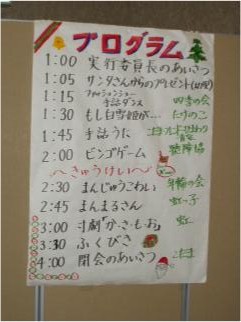 プログラム
1:00 実行委員長のあいさつ
1:05 サンタさんからのプレゼント(幼児)
1:15 ファッションショー 手話ダンス 四季の会
1:30 もし白雪姫が… たけのこ
1:45 手話うた
2:00 ビンゴゲーム 聴障協
〜きゅうけい〜
2:30 まんじゅうこわい 年輪の会
2:45 まんまるさん 虹っ子
3:00 寸劇「か・さ・も・お」 虹
3:30 ふくびき
4:00 閉会のあいさつ